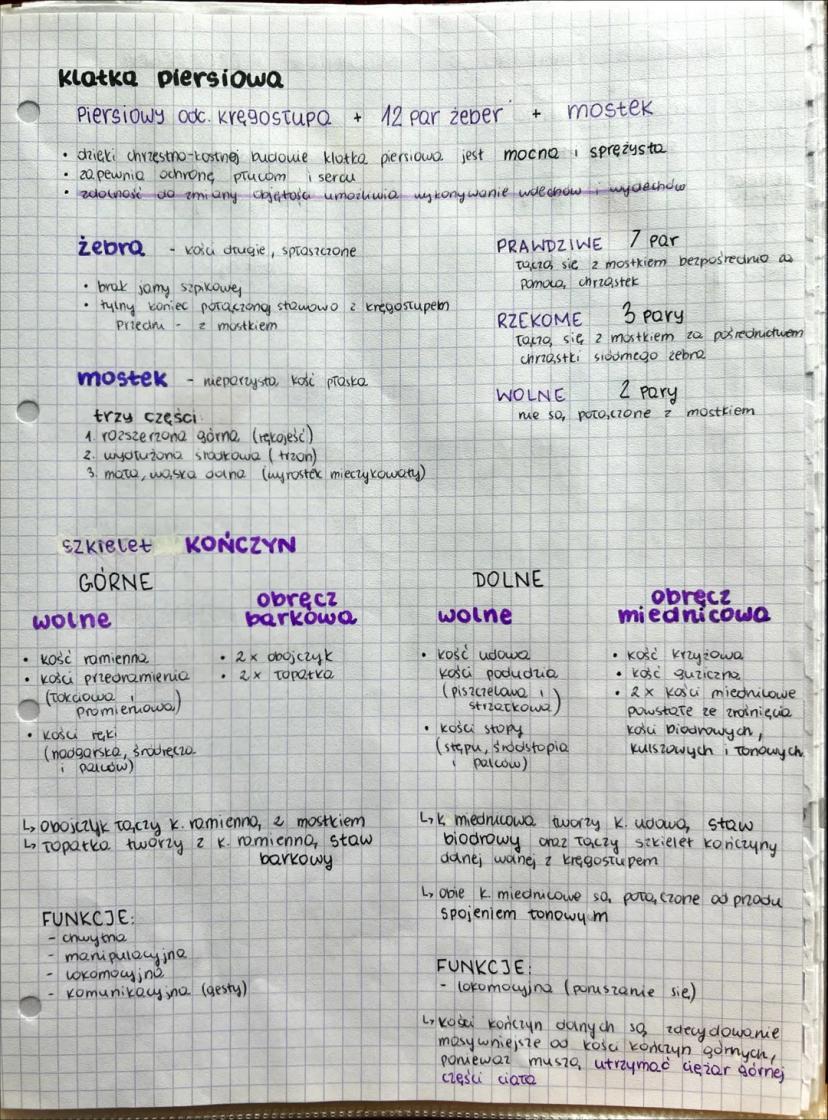 klatka piersiowa
Piersiowy odc. kręgosłupa + 12 par żeber + mostek
• dzięki chrzęstno-kostnej budowie klatka piersiowa jest mocna i sprężysta
• zapewnia ochronę płucom i sercu
• zdolność do zmiany objętości umożliwia wykonywanie wdechów i wydechów
żebra - kości długie, spłaszczone
• brak jamy szpikowej
• tylny koniec połączony stawowo z kręgosłupem
Przedni - z mostkiem
mostek - nieparzysta kość płaska
trzy części:
1. rozszerzona górna (rękojeść)
2. wydłużona środkowa (trzon)
3. mała, wąska dolna (wyrostek mieczykowaty)
PRAWDZIWE 7 par
łączą się z mostkiem bezpośrednio za
pomocą chrząstek
RZEKOME 3 pary
łączą się z mostkiem za pośrednictwem
chrząstki siódmego żebra
WOLNE 2 pary
nie są połączone z mostkiem
szkielet KOŃCZYN
GÓRNE
wolne
• kość ramienna
• kości przedramienia
(łokciowa i
promieniowa)
• kości ręki
(nadgarstka, śródręcza
i palców)
obręcz
barkowa
• 2x obojczyk
• 2x łopatka
↳ obojczyk łączy k. ramienną z mostkiem
↳ łopatka tworzy z k. ramienną staw
barkowy
FUNKCJE:
- chwytna
- manipulacyjna
- lokomocyjna
- komunikacyjna (gesty)
DOLNE
wolne
• kość udowa
kości podudzia
(piszczelowa i
strzałkowa)
• kości stopy
(stępu, śródstopia
i palców)
obręcz
miednicowa
• kość krzyżowa
• kość guziczna
• 2x kości miednicowe
powstałe ze zrośnięcia
kości biodrowych,
kulszowych i łonowych
↳ k. miednicowa tworzy k. udową staw
biodrowy oraz łączy szkielet kończyny
danej wolnej z kręgosłupem
↳ obie k. miednicowe są połączone od przodu
spojeniem łonowym
FUNKCJE:
- lokomocyjna (poruszanie się)
↳ kości kończyn danych są zdecydowanie
masywniejsze od kości kończyn górnych,
ponieważ muszą utrzymać ciężar górnej
części ciała